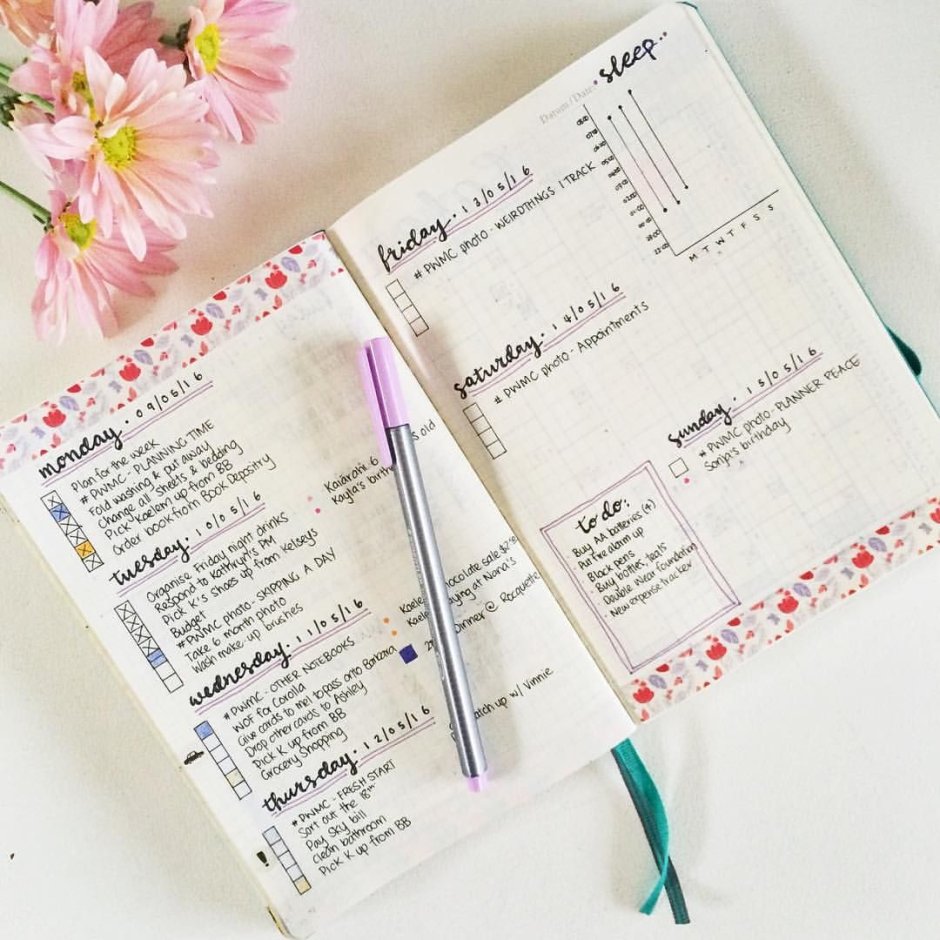 monday. 09/05/16
Plan for the week
# PWMC - PLANNING TIME
Fold washing & put away
Change all sheets & bedding
Pick Kaelem up from BB
Order book from Book Depositry
tuesday. 10/05/16
Organise Friday night drinks
Respond to Kathryn's DM
Pick K's shoes up from Kelseys
Budget
#PWMC photo - SKIPPING A DAY
Take 6 month photo
Wash make-up brushes
6 old
Kayla's birth
wednesday. 11/05/16
# PWMC - OTHER NOTEBOOKS
WOF for Corolla
Give cards to mel to pass onto
Drop other cards to Ashley
Pick K up from BB
Grocery Shopping
chocolate sale
ying at Nana's
Dinner @
thursday. 12/05/16
# PWMC - FRESH START
Sort out the 18th
Pay sky bill
Clean bathroom
Pick K up from BB
!
atch up w/ Vinnie
Datum/Date:
sleep
08:00
07:00
06:00
05:00
01:00
23:00
22:00
M T W T F S S
friday. 13/05/16
# PWMC photo - WEIRD THINGS I TRACK
saturday. 14/05/16
# PWMC photo - Appointments
sunday. 15/05/16
# PWMC photo - PLANNER PEACE
Sonja's birthday
to do:
· Buy AA batteries (4)
· Put fire alarm up
· Black pens
· Buy bottles, teats
· Double Wear foundation
· New expense tracker